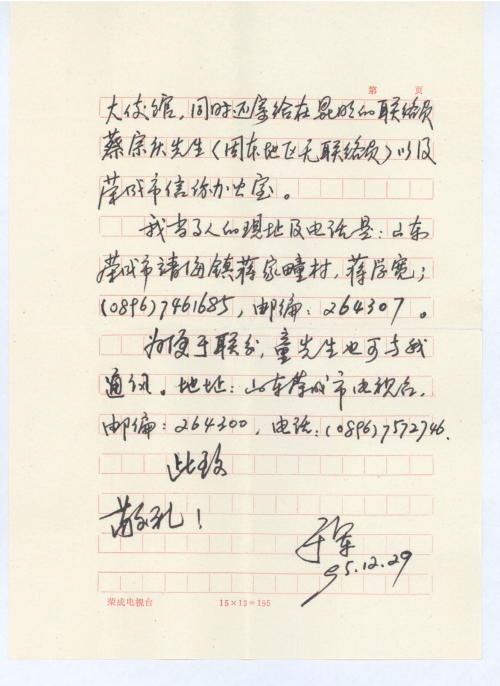 第 页
大使馆，同时还寄给在昆明的联络员
蔡宗庆先生（因东地区无联络员）以及
荣成市信访办公室。
我当事人的现址及电话是：山东
荣成市靖海镇蒋家疃村，蒋学宽；
(0896)7461685，邮编：264307。
为便于联系，童先生也可与我
通讯。地址：山东荣成市电视台，
邮编：264300，电话：(0896)7572746.
此致
敬礼！
于军
95.12.29
荣成电视台 15×13=195